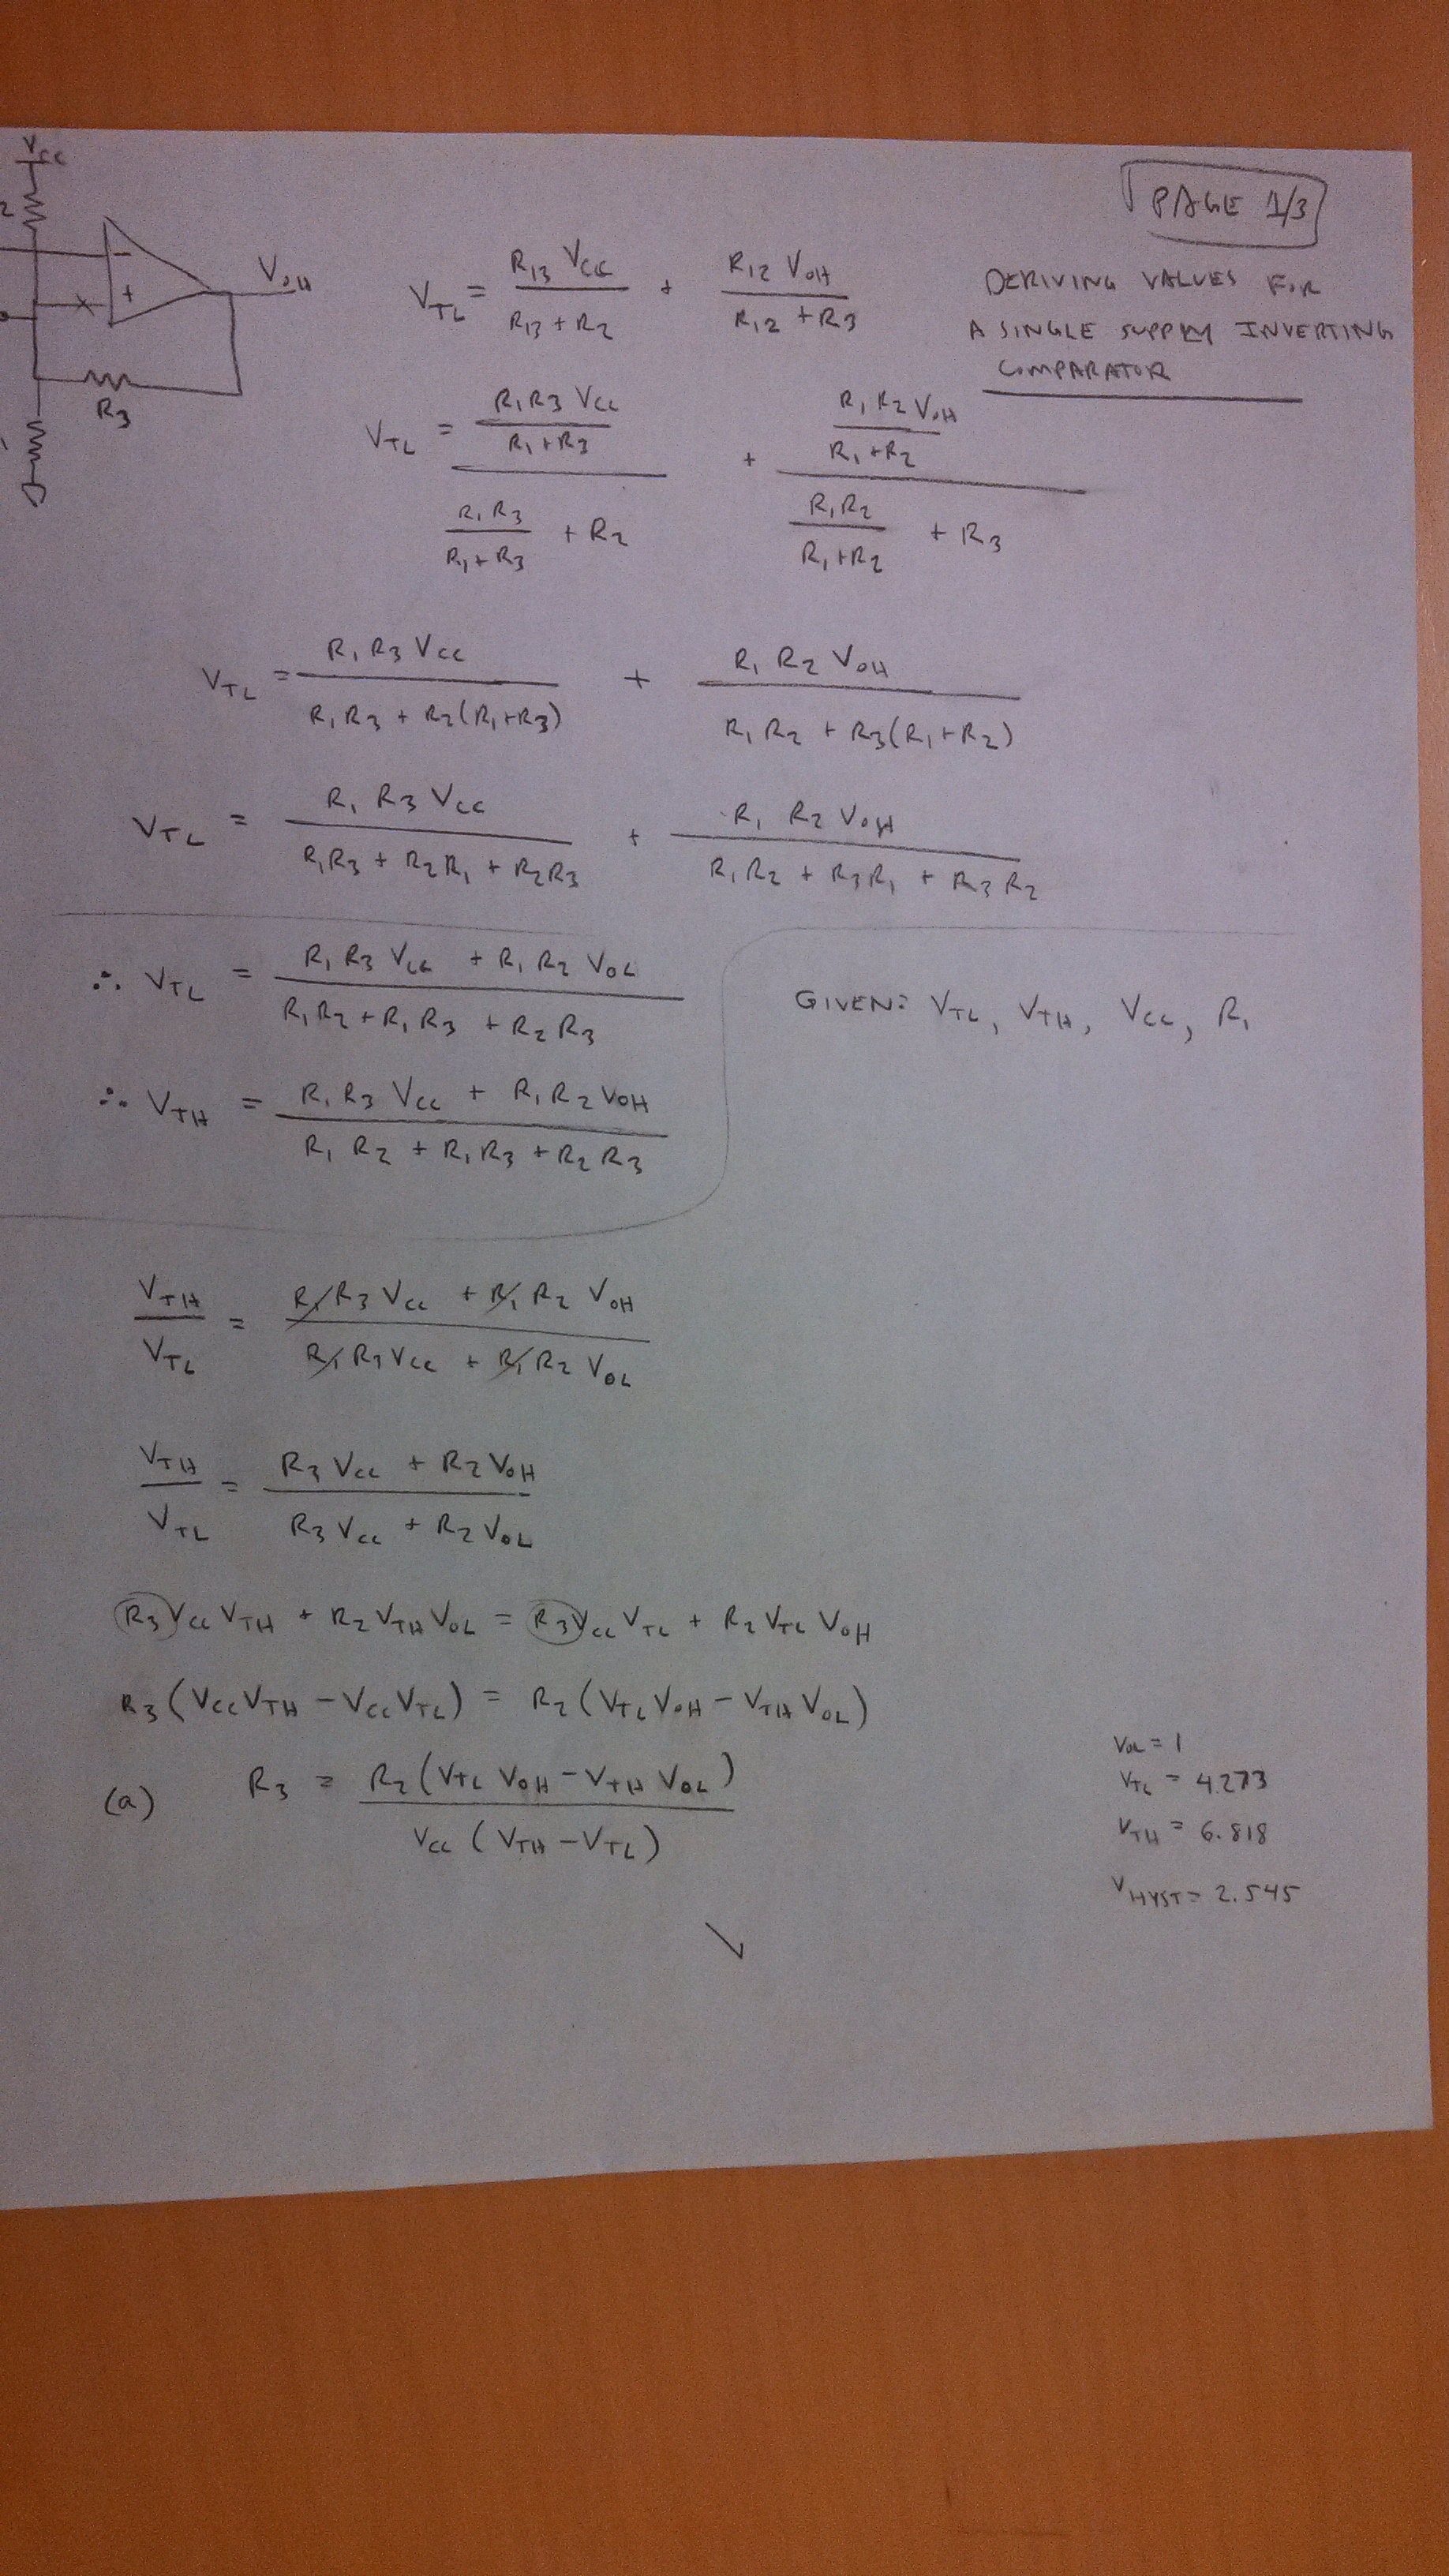 PAGE 1/3
DERIVING VALUES FOR
A SINGLE SUPPLY INVERTING
COMPARATOR
VCC
2
-
+
VOH
R3
1
VTL = R13 VCC / R13 + R2 + R12 VOH / R12 + R3
VTL = (R1R3 VCC / R1 + R3) / (R1R3 / R1 + R3 + R2) + (R1R2 VOH / R1 + R2) / (R1R2 / R1 + R2 + R3)
VTL = R1 R3 VCC / R1R3 + R2(R1+R3) + R1 R2 VOH / R1R2 + R3(R1+R2)
VTL = R1 R3 VCC / R1R3 + R2R1 + R2R3 + R1 R2 VOH / R1R2 + R3R1 + R3R2
∴ VTL = R1 R3 VCC + R1 R2 VOL / R1R2 + R1R3 + R2R3
GIVEN: VTL, VTH, VCC, R1
∴ VTH = R1 R3 VCC + R1R2 VOH / R1 R2 + R1R3 + R2R3
VTH / VTL = R1R3 VCC + R1 R2 VOH / R1R3VCC + R1R2 VOL
VTH / VTL = R3 VCC + R2 VOH / R3 VCC + R2 VOL
R3VCC VTH + R2 VTH VOL = R3VCC VTL + R2 VTL VOH
R3(VCCVTH - VCCVTL) = R2(VTLVOH - VTHVOL)
(a) R3 = R2(VTL VOH - VTH VOL) / VCC (VTH - VTL)
VOL = 1
VTL = 4.273
VTH = 6.818
VHYST = 2.545